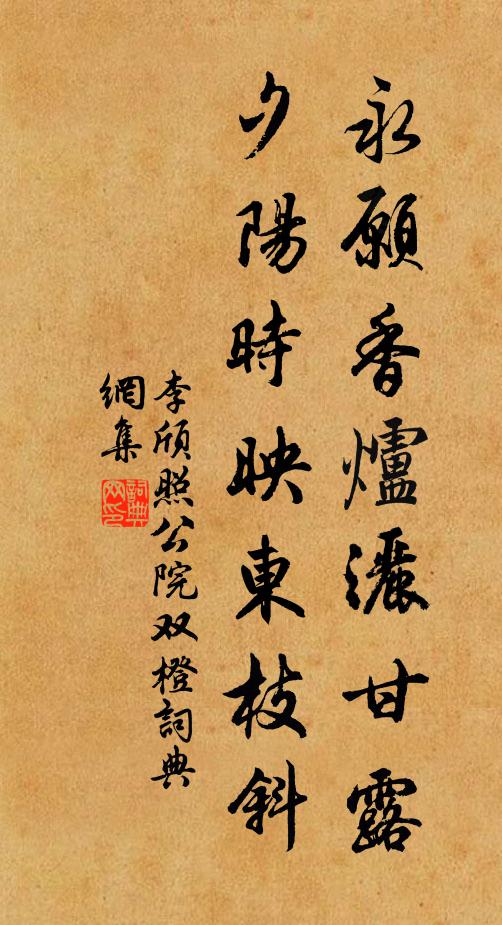 永願香爐灑甘露
夕陽時映東枝斜
李頎照公院双橙詞典
網集
詞典
网印